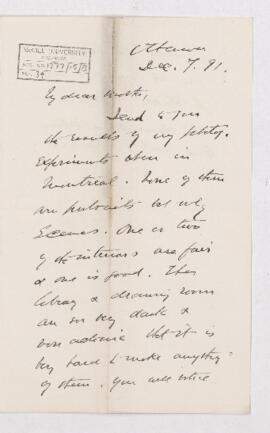 McGILL UNIVERSITY
ARCHIVES
Ottawa
Dec. 7. 91.
My dear
I send to you
the results of my photog.
experiments when in
Montreal. None of them
are portraits but only
Scenes. One or two
of the interiors are fair
& one is good. The
library & drawing room
are so very dark &
that it is
very hard to make anything
of them. You will notice